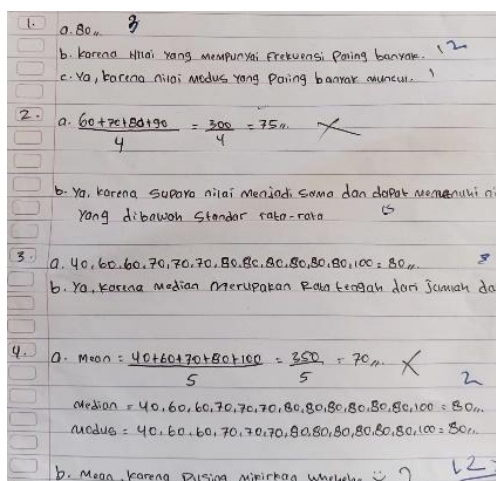 1. a. 80,, 3
b. Karena Nilai yang mempunyai Frekuensi Paling banyak. 12
c. Ya, karena nilai modus yang paling banyak muncul. 1
2. a. 60+70+80+90 / 4 = 300 / 4 = 75,, X
b. Ya, karena supaya nilai menjadi sama dan dapat memenuhi ni
yang dibawah Standar rata-rata 15
3. a. 40,60,60,70,70,70,80,80,80,80,80,80,100 = 80,, 8
b. Ya, karena median merupakan Rata tengah dari jumlah da
4. a. Mean = 40+60+70+80+100 / 5 = 350 / 5 = 70,, X
2
Median = 40,60,60,70,70,70,80,80,80,80,80,80,100 = 80,,
Modus = 40,60,60,70,70,70,80,80,80,80,80,80,100 = 80,,
b. Mean, karena pusing mikirkan 12